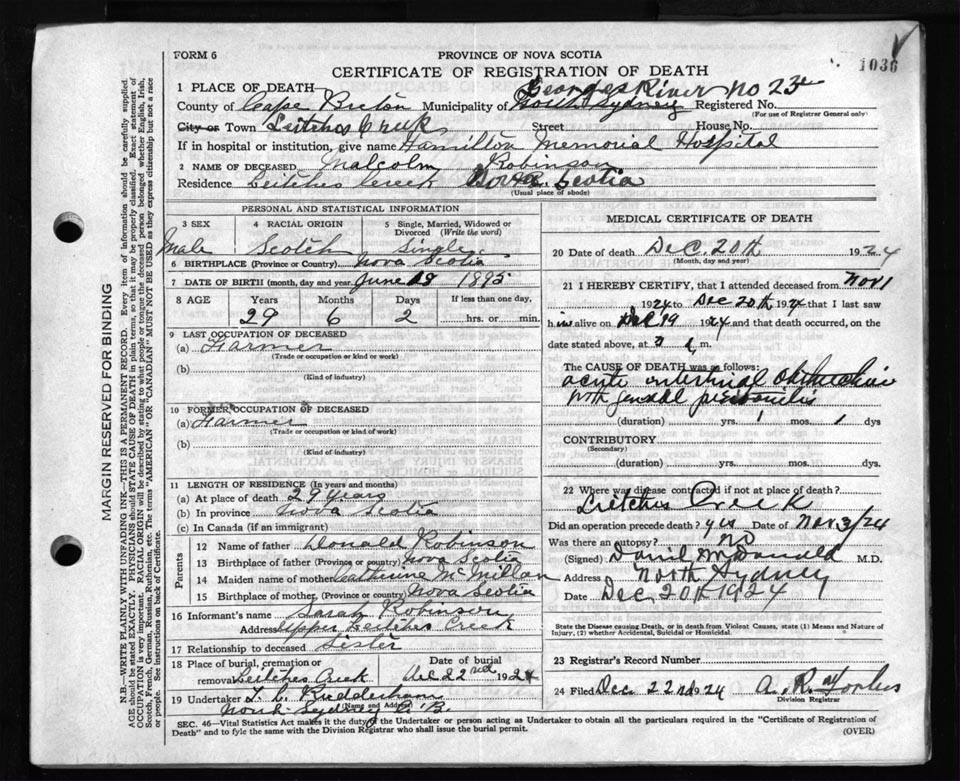 1036
FORM 6
PROVINCE OF NOVA SCOTIA
CERTIFICATE OF REGISTRATION OF DEATH
1 PLACE OF DEATH— Georges River No 23
County of Cape Breton Municipality of South Sydney Registered No.
(For use of Registrar General only)
City or Town Leitches Creek Street House No.
If in hospital or institution, give name Hamilton Memorial Hospital
2 NAME OF DECEASED Malcolm Robinson
Residence Leitches Creek Nova Scotia
(Usual place of abode)
PERSONAL AND STATISTICAL INFORMATION
3 SEX 4 RACIAL ORIGIN 5 Single, Married, Widowed or Divorced (Write the word)
Male Scotch Single
6 BIRTHPLACE (Province or Country) Nova Scotia
7 DATE OF BIRTH (month, day and year) June 18 1895
8 AGE Years Months Days If less than one day,
29 6 2 hrs. or min.
9 LAST OCCUPATION OF DECEASED
(a) Farmer
(Trade or occupation or kind of work)
(b)
(Kind of industry)
10 FORMER OCCUPATION OF DECEASED
(a) Farmer
(Trade or occupation or kind of work)
(b)
(Kind of industry)
11 LENGTH OF RESIDENCE (In years and months)
(a) At place of death 29 years
(b) In province Nova Scotia
(c) In Canada (if an immigrant)
Parents
12 Name of father Donald Robinson
13 Birthplace of father (Province or country) Nova Scotia
14 Maiden name of mother Catherine McMillan
15 Birthplace of mother (Province or country) Nova Scotia
16 Informant's name Sarah Robinson
Address Upper Leitches Creek
17 Relationship to deceased Sister
18 Place of burial, cremation or removal Leitches Creek Date of burial Dec 22nd 1924
19 Undertaker
(Name and Address)
North Sydney C.B.
MEDICAL CERTIFICATE OF DEATH
20 Date of death Dec. 20th 1924
(Month, day and year)
21 I HEREBY CERTIFY, that I attended deceased from Nov 1
1924 to Dec 20th 1924 that I last saw
him alive on Dec 19 1924 and that death occurred, on
date stated above, at m.
The CAUSE OF DEATH was as follows:
acute intestinal obstruction
with general peritonitis
(duration) yrs. 1 mos. 1 dys
CONTRIBUTORY
(Secondary)
(duration) yrs. mos. dys.
22 Where was disease contracted if not at place of death?
Lietches Creek
Did an operation precede death? yes Date of Nov 3/24
Was there an autopsy? no
(Signed) Daniel McDonald M.D.
Address North Sydney
Date Dec 20th 1924
State the Disease causing Death, or in death from Violent Causes, state (1) Means and Nature of Injury, (2) whether Accidental, Suicidal or Homicidal.
23 Registrar's Record Number
24 Filed Dec 22nd 1924 A. R. Forbes
Division Registrar
SEC. 46—Vital Statistics Act makes it the duty of the Undertaker or person acting as Undertaker to obtain all the particulars required in the "Certificate of Registration of
Death" and to fyle the same with the Division Registrar who shall issue the burial permit.
(OVER)
MARGIN RESERVED FOR BINDING
N.B.—WRITE PLAINLY WITH UNFADING INK—THIS IS A PERMANENT RECORD. Every item of information should be carefully supplied.
AGE should be stated EXACTLY. PHYSICIANS should STATE CAUSE OF DEATH in plain terms, so that it may be properly classified. Exact statement of
OCCUPATION is very important. RACIAL ORIGIN will be described by stating to what people or tongue the deceased person belonged whether English, Irish,
Scotch, French, German, Russian, Ruthenian, etc. The terms "AMERICAN" or "CANADIAN" MUST NOT BE USED as they express citizenship but not a race
or people. See instructions on back of Certificate.